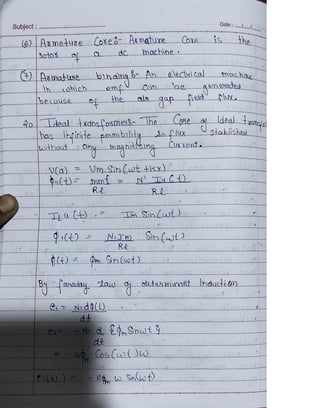 Subject : Date :
(6) Armeture Core:- Armature Core is the
rotor of a dc machine.
(7) Armature binding:- An electrical machine
in which emf can be generated
because of the air gap field flux.
20 Ideal transformers- The Core of Ideal
has infinite permibility so flux stablished
without any magnitizing Current.
V(a) = Vm Sin(wt + kx)
Φ11(t) = mmf/Rl = N' (t)/Rl
(t) = Im Sin(wt)
Φ1(t) = N1Im/Rl Sin(wt)
Φ(t) = Φm Sin(wt)
By faraday law of Induction
e1 = N1dΦ(t)/dt
e1 = -N1 d/dt {Φm Sinwt}
Φm Cos(wt)w
e1(t) = Φm w Sin(wt)